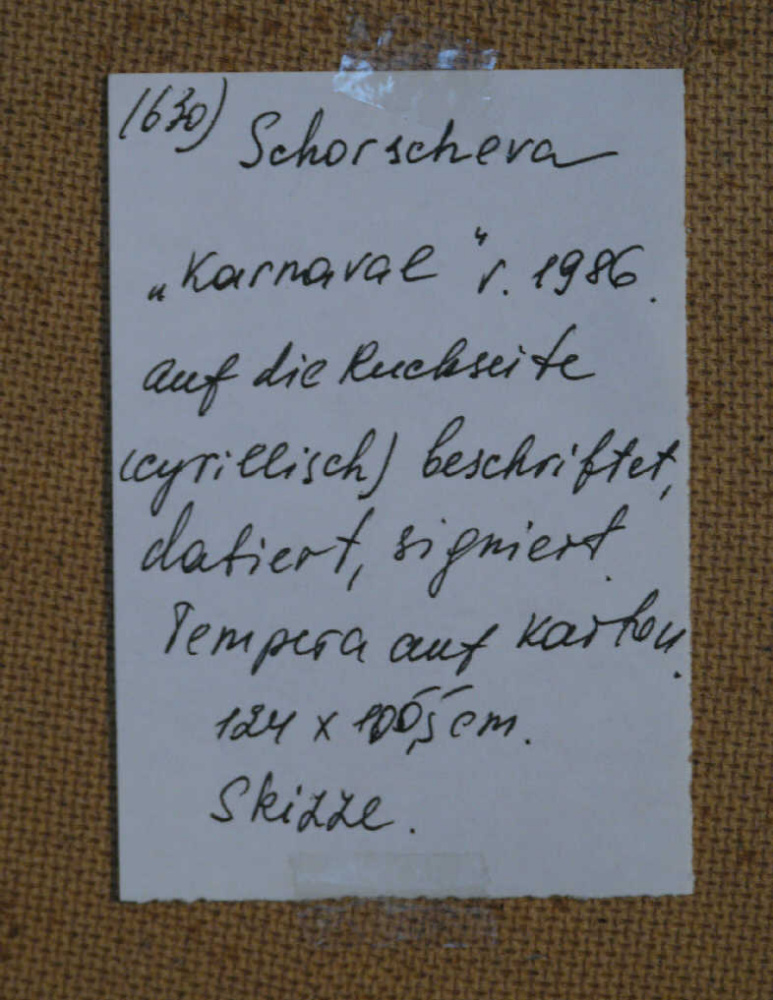 (630)
Schorscheva
„Karnaval" r. 1986.
auf die Ruckseite
(cyrillisch) beschriftet,
datiert, signiert.
Tempera auf Karton.
124 x 100,5 cm.
Skizze.